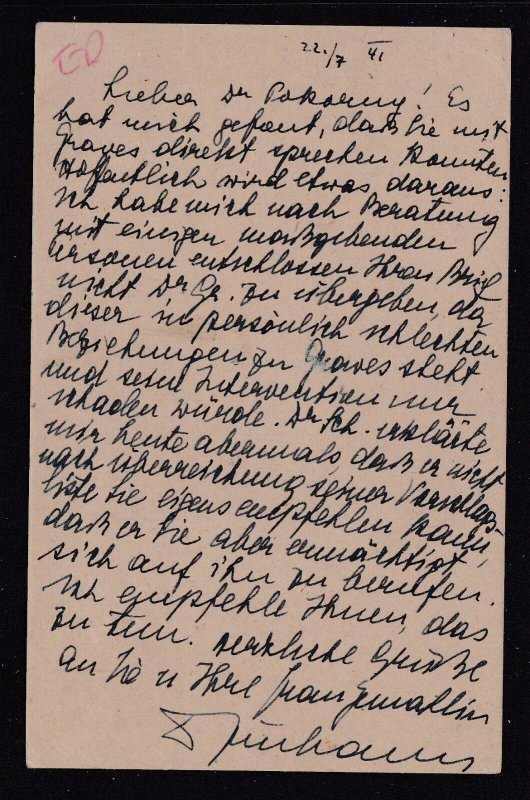 22./7 41
Lieber Dr Pokorny! Es
hat mich gefreut, daß Sie mit
Graves direkt sprechen konnten.
Hoffentlich wird etwas daraus.
Ich habe mich nach Beratung
mit einigen maßgebenden
Personen entschlossen Ihren Brief
nicht Dr Gr. zu übergeben, da
dieser in persönlich schlechten
Beziehungen zu Graves steht
und seine Intervention nur
schaden würde. Dr Sch. erklärte
mir heute abermals, daß er nicht
nach Überreichung seiner Vorschlags-
liste Sie eigens empfehlen kann,
daß er Sie aber ermächtigt
sich auf ihn zu berufen.
Ich empfehle Ihnen, das
zu tun. Herzliche Grüße
an Sie u Ihre Frau Gemahlin